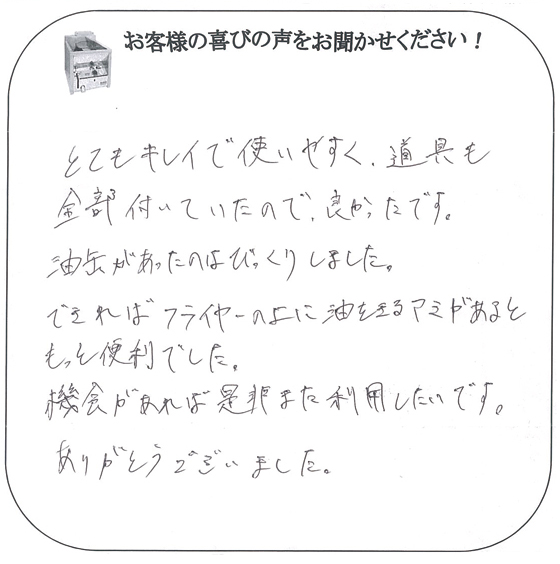 お客様の喜びの声をお聞かせください！
とてもキレイで使いやすく、道具も
全部付いていたので、良かったです。
油缶があったのはびっくりしました。
できればフライヤーの上に油をきるアミがあると
もっと便利でした。
機会があれば是非また利用したいです。
ありがとうございました。